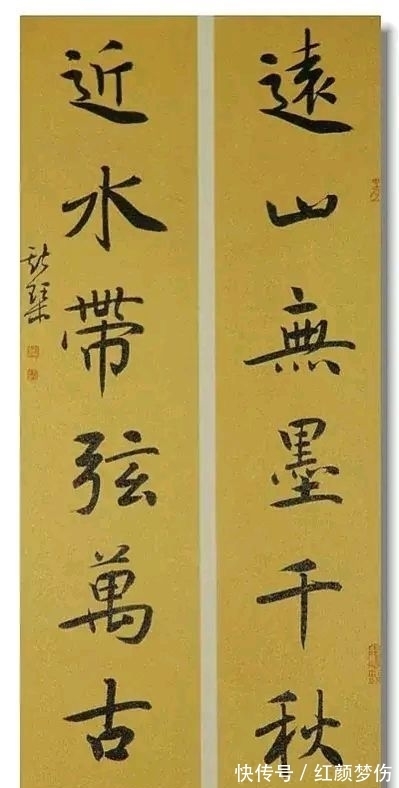 遠山無墨千秋
近水帶弦萬古
快传号 / 红颜梦伤